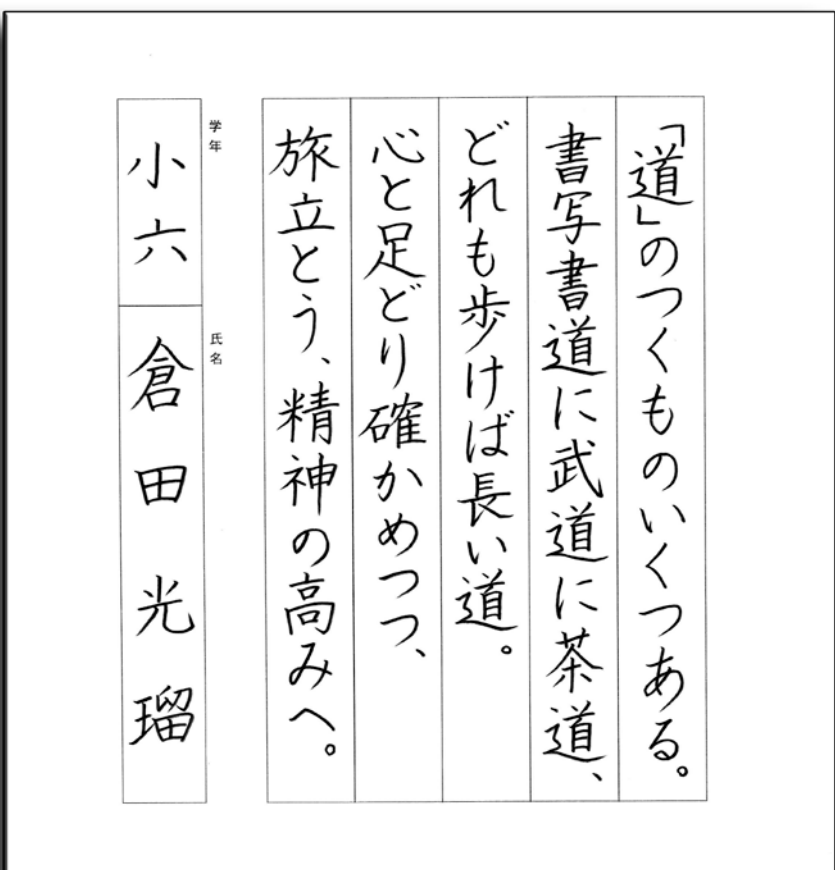 「道」のつくものいくつある。
書写書道に武道に茶道、
どれも歩けば長い道。
心と足どり確かめつつ、
旅立とう、精神の高みへ。
学年
小六
氏名
倉田光瑠